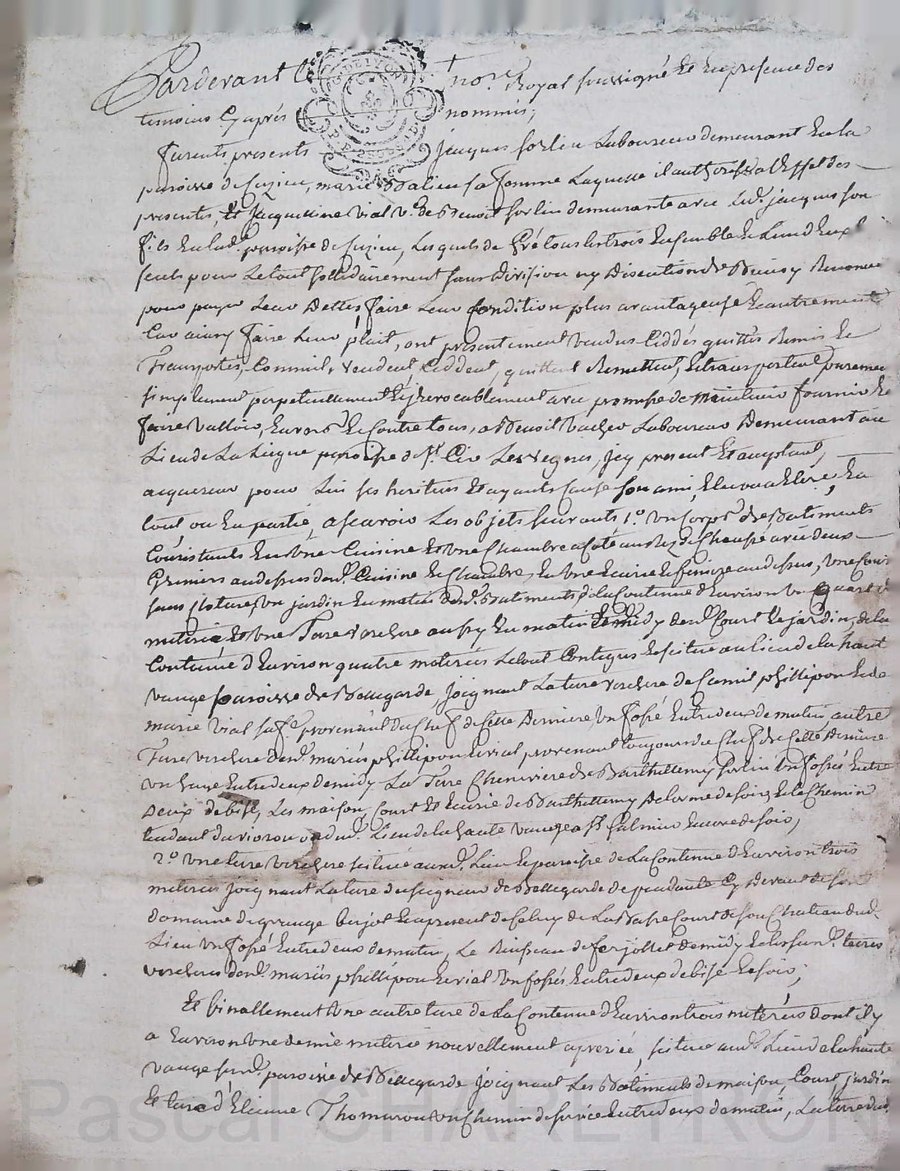 Pardevant le nore Royal soussigné et en presence des
temoins cy apres nommés,
furents presents jacques forlin Laboureur demeurant en la
paroisse de Cuzieu, marie Dalieu sa femme Laquelle il authorise a l'effet des
presentes et Jacquemine vial ve de Benoit forlin demeurante avec led. jacques son
fils en lad. paroisse de Cuzieu, Lesquels de gré tous les trois Ensemble et L'un d'eux
seuls pour Le tout sollidairement sans division ny discution de Biens y Renoncer
pour payer Leur Dettes faire Leur Condition plus avantageuse et autrement
Car ainsy faire Leur plait, ont presentement vendus Ceddés quittés Remis et
Transportés, Comme vendent Ceddent, quittent Remettent, et transportent purement
simplement perpetuellement et jrrevocablement avec promesse de maintenir fournir et
faire valloir, Envers et Contre tous, a Benoit Vacher Laboureur Demeurant au
Lieu de La paroisse de St. Cir Les vignes, jcy present Et acceptant,
acquereur pour Lui ses heritiers Et ayants Cause son ami, Elu ou a Elire, En
tout ou En partie, a scavoir Les objets suivants 1o. un Corps de Batiments
Consistants En une Cuisine et une Chambre a Coté au Rez de Chaussé avec deux
Greniers au dessus desd. Cuisine et Chambre, En une Ecurie et feniere au dessus, une Cour
sans Cloture, un jardin En matin desd. Batiments de la Contenue d'Environ un quart de
meterée et une Terre verchere aussy En matin et midy desd. Court et jardin, de la
Contenue d'Environ quatre meterées Le tout Contigus et situé au Lieu de la haut
vauge paroisse de Bellegarde, joignant La terre verchere de Camil phillipon et de
marie vial sa fe. provenant du Chef de Cette Derniere un fossé Entre deux de matin, autre
Terre verchere desd. mariés phillipon et vial provenant toujours du Chef de Cette Derniere
un Entre deux de midy La Terre Cheneviere de Barthellemy forlin un fossé Entre
Deux de bise, Les maison, Court Et Ecurie de Barthellemy Delorme de soir, et le Chemin
tendant du dud. Lieu de la haute vauge a St. Galmier Encore de soir,
2o. une terre verchere située aud. Lieu et paroisse de La Contenue d'Environ trois
meterées joignant La terre du seigneur de Bellegarde dependante Cy Devant de son
domaine de grange et a present de Celuy de La Basse Court de son Chateau dud.
Lieu un fossé Entre deux de matin, Le Ruisseau de de midy et les terres
vercheres desd. mariés phillipon et vial un fossés Entre deux de bise et soir,
Et finallement une autre terre de La Contenue d'Environ trois meterées dont il y
a Environ une demie meterée nouvellement, située aud. Lieu de la haute
vauge sud. paroisse de Bellegarde joignant Les Batiments de maison, Court, jardin
et terre d'Etienne Thomas un Chemin de service Entre deux de matin, La terre
Pascal CHARETRON